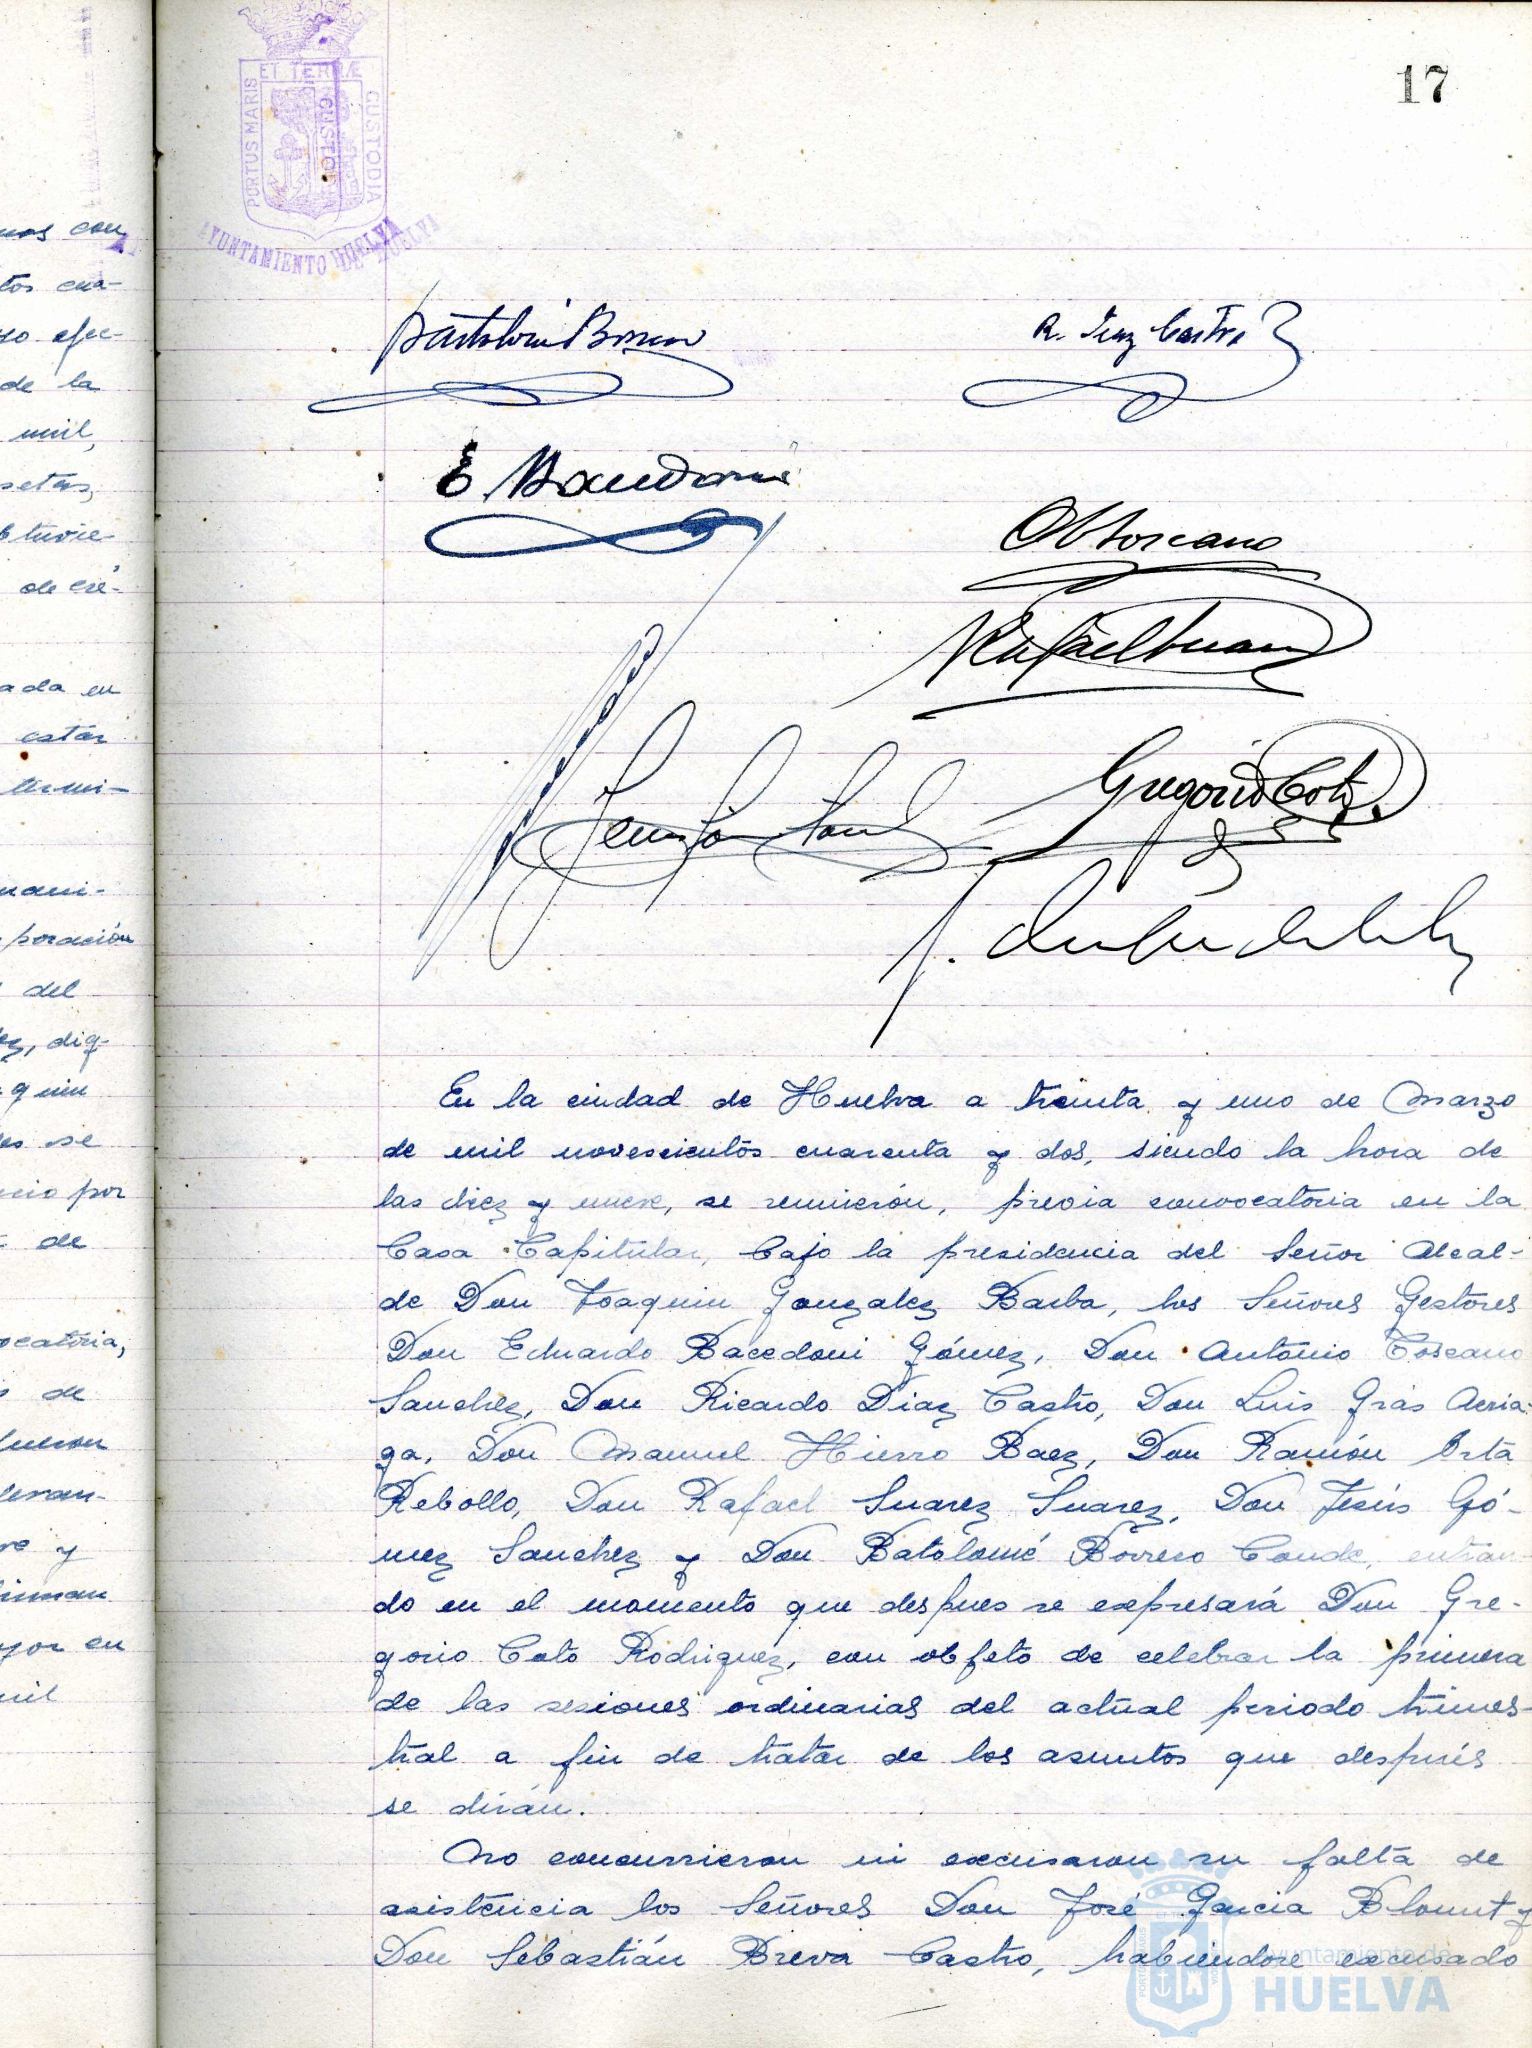 17
PORTUS MARIS ET TERRÆ CUSTODIA
AYUNTAMIENTO DE HUELVA
nos con
tos cua-
de la
mil,
setas,
de cré-
ada en
estar
termi-
poración
del
ez, dig-
quin
es se
por
de
ocatoria,
de
fueron
y
firman
yor en
mil
R. Diaz Castro
E. Bacedoni
A Toscano
Rafael Suarez
Gregorio Coto
En la ciudad de Huelva a treinta y uno de Marzo
de mil novescientos cuarenta y dos, siendo la hora de
las diez y nueve, se reunieron, previa convocatoria en la
Casa Capitular, bajo la presidencia del Señor Alcal-
de Don Joaquin Gonzalez Barba, los Señores Gestores
Don Eduardo Bacedoni Gómez, Don Antonio Toscano
Sanchez, Don Ricardo Diaz Castro, Don Luis Gras Arria-
ga, Don Manuel Hierro Baez, Don Ramón Orta
Rebollo, Don Rafael Suarez Suarez, Don Jesús Gó-
mez Sanchez y Don Batolomé Borrero Conde, entran-
do en el momento que despues se expresará Don Gre-
gorio Coto Rodriguez, con objeto de celebrar la primera
de las sesiones ordinarias del actual periodo trimes-
tral a fin de tratar de los asuntos que después
se dirán.
No concurrieron ni excusaron su falta de
asistencia los Señores Don José Garcia Blount y
Don Sebastián Breva Castro, habiendose excusado
Ayuntamiento de
HUELVA